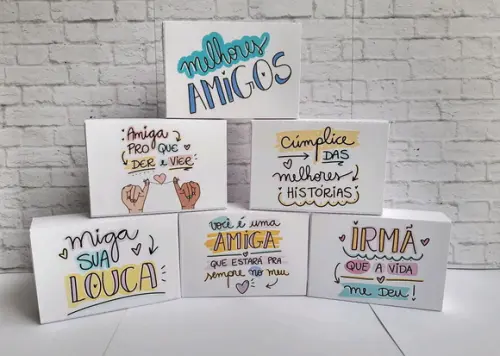 melhores
AMIGOS
Amiga
PRO QUE
DER e VIER
Cúmplice
DAS
melhores
HISTÓRIAS
miga
SUA
LOUCA
você é uma
AMIGA
QUE ESTARÁ PRA
sempre no meu
IRMÃ
QUE A VIDA
me Deu!